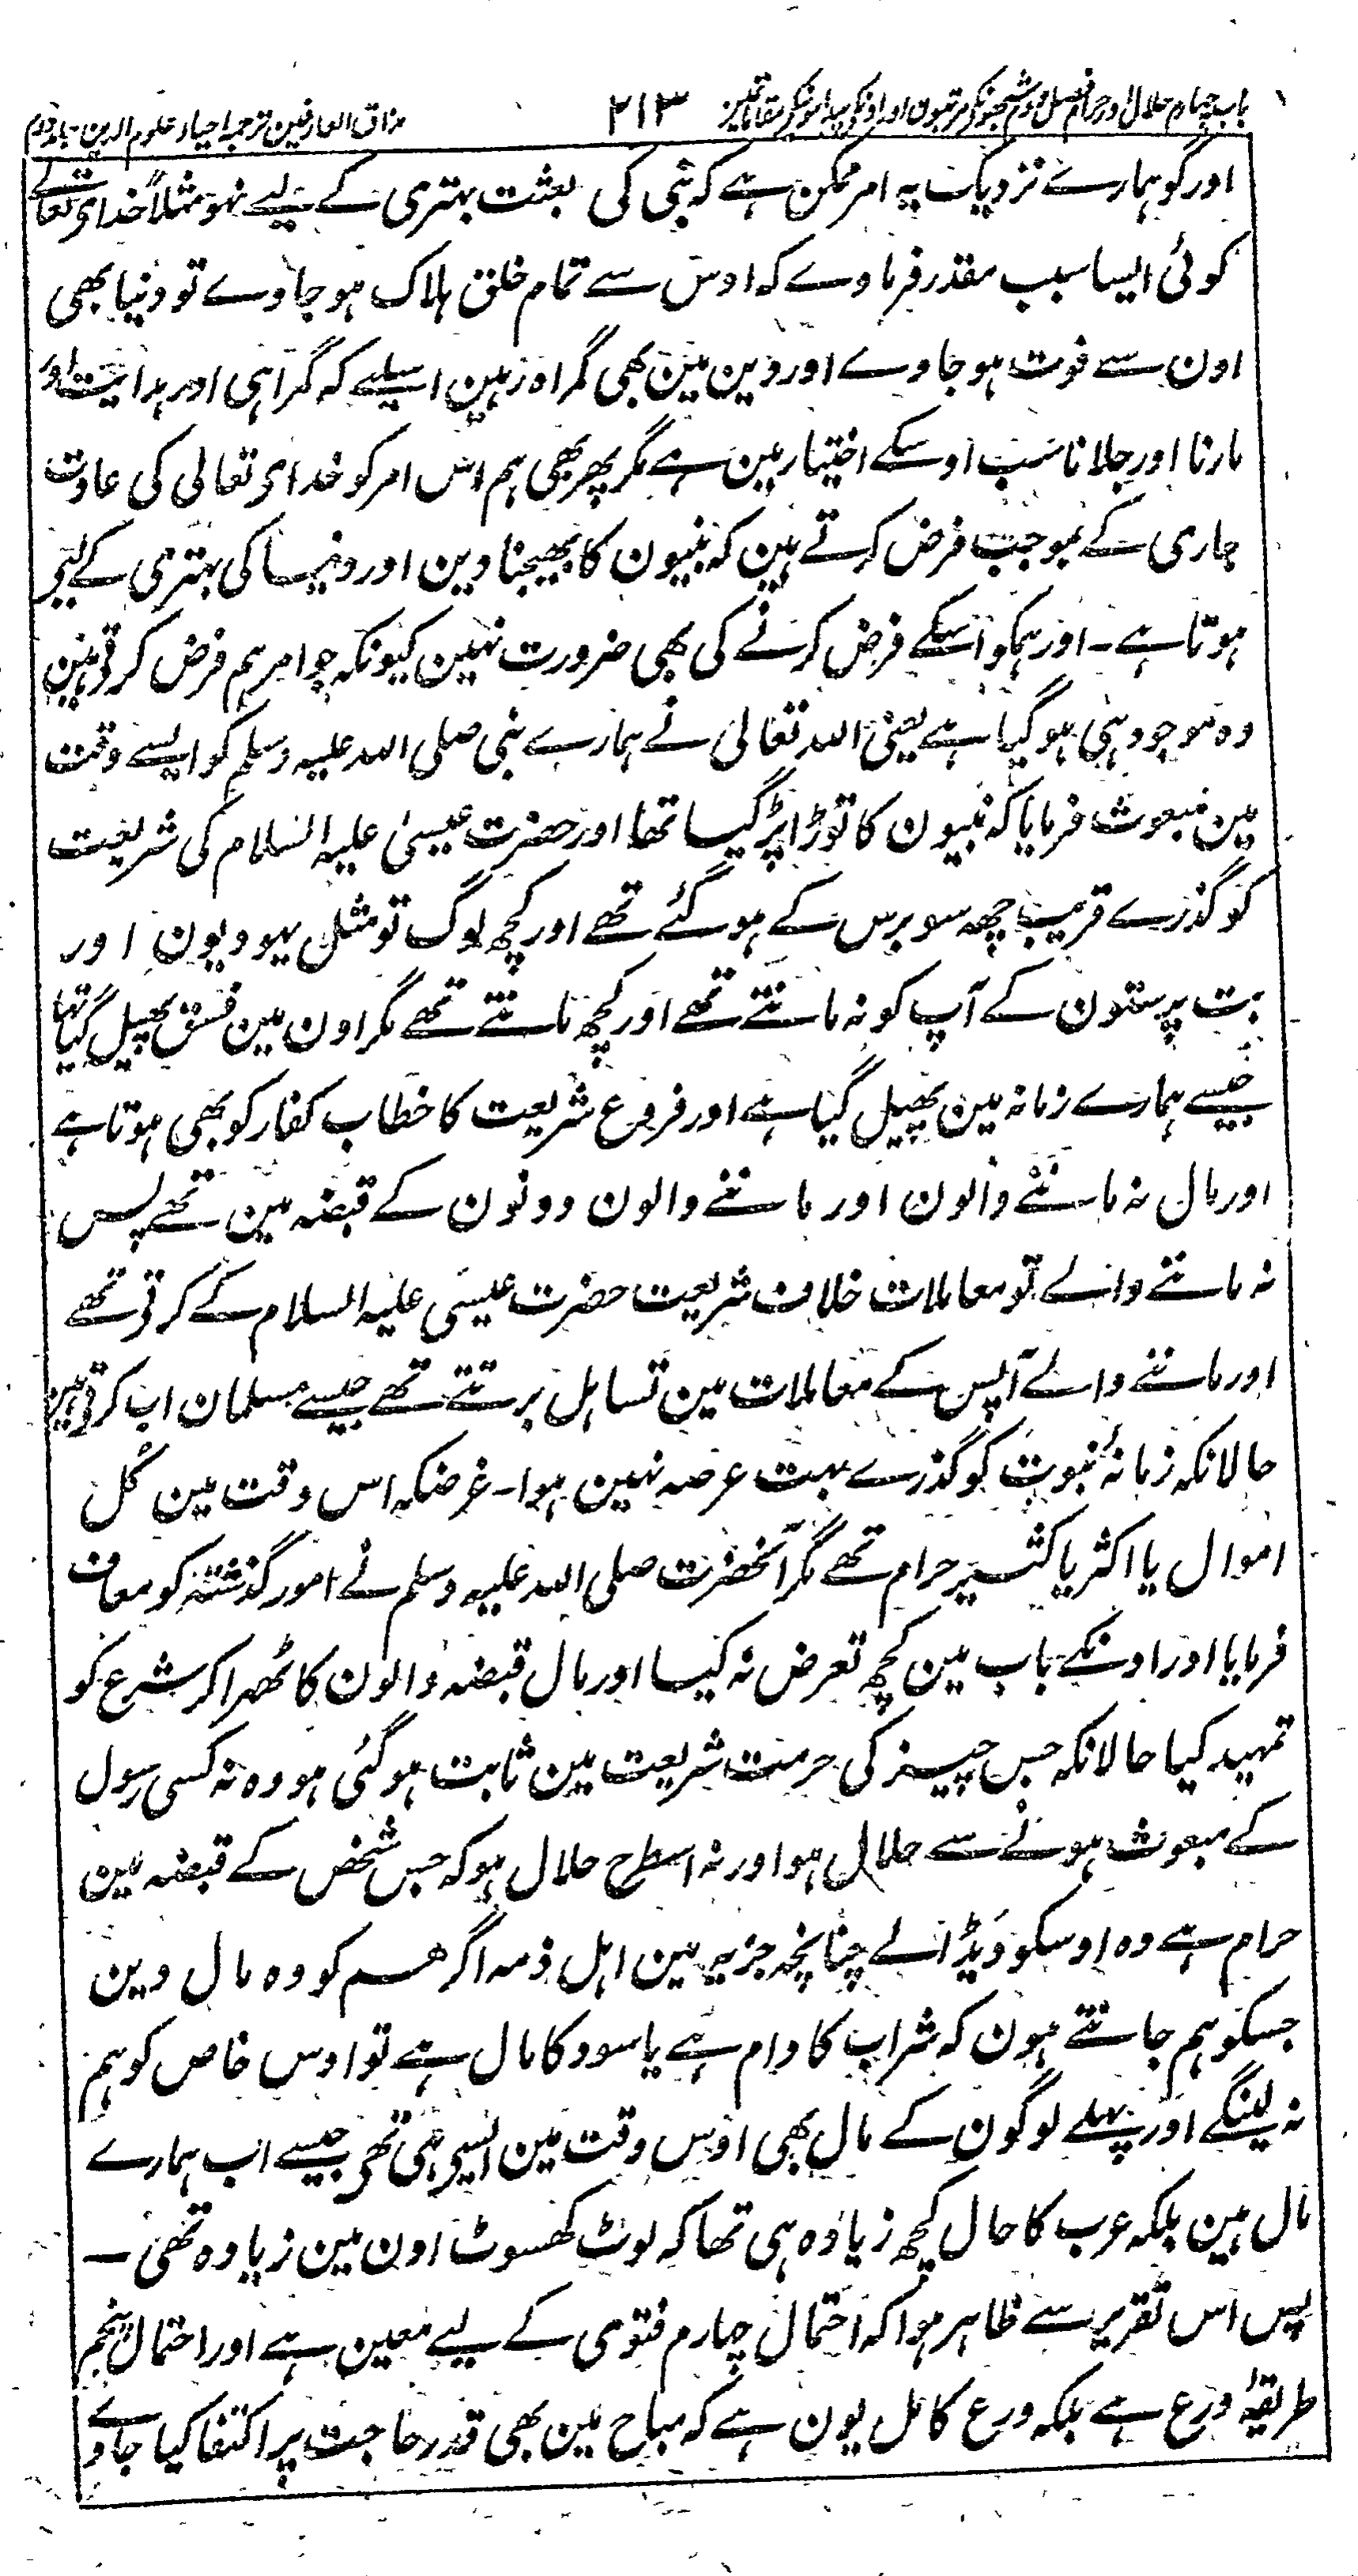 باب چہارم حلال و حرام فصل دوم شبہونکے مرتبون اور اونکے پیدا ہونیکے مقامات مین ۲۱۳ مذاق العارفین ترجمہ احیاء علوم الدین جلد دوم
اور گو ہمارے نزدیک یہ امر ممکن ہے کہ نبی کی بعثت بہتری کے لیے نہو مثلاً خدای تعالے
کوئی ایسا سبب مقدر فرماوے کہ اوس سے تمام خلق ہلاک ہو جاوے تو دنیا بھی
اون سے فوت ہو جاوے اور دین مین بھی گمراہ رہین اسلیے کہ گمراہی اور ہدایت اور
مارنا اور جلانا سب اوسکے اختیار مین ہے مگر پھر بھی ہم اس امر کو خدای تعالی کی عادت
جاری کے بموجب فرض کرتے ہین کہ نبیون کا بھیجنا دین اور دنیا کی بہتری کے لیے
ہوتا ہے۔ اور ہمکو اسکے فرض کرنے کی بھی ضرورت نہین کیونکہ جو امر ہم فرض کرتے ہین
وہ موجود ہی ہو گیا ہے یعنی اللہ تعالی نے ہمارے نبی صلی اللہ علیہ وسلم کو ایسے وقت
مین مبعوث فرمایا کہ نبیون کا توڑا پڑ گیا تھا اور حضرت عیسیٰ علیہ السلام کی شریعت
کو گذرے قریب چھہ سو برس کے ہو گئے تھے اور کچھ لوگ تو مثل یہودیون اور
بت پرستون کے آپ کو نہ مانتے تھے اور کچھ مانتے تھے مگر اون مین فسق پھیل گیا تھا
جیسے ہمارے زمانہ مین پھیل گیا ہے اور فروع شریعت کا خطاب کفار کو بھی ہوتا ہے
اور مال نہ ماننے والون اور ماننے والون دونون کے قبضہ مین تھے پس
نہ ماننے والے تو معاملات خلاف شریعت حضرت عیسی علیہ السلام کے کرتے تھے
اور ماننے والے آپس کے معاملات مین تساہل برتتے تھے جیسے مسلمان اب کرتے ہین
حالانکہ زمانۂ نبوت کو گذرے بہت عرصہ نہین ہوا۔ غرضکہ اس وقت مین کُل
اموال یا اکثر یا کثیر حرام تھے مگر آنحضرت صلی اللہ علیہ وسلم نے امور گذشتہ کو معاف
فرمایا اور اونکے باب مین کچھ تعرض نہ کیا اور مال قبضہ والون کا ٹھہرا کر شرع کو
تمہید کیا حالانکہ جس چیز کی حرمت شریعت مین ثابت ہو گئی ہو وہ نہ کسی رسول
کے مبعوث ہونے سے حلال ہو اور نہ اسطرح حلال ہو کہ جس شخص کے قبضہ مین
حرام ہے وہ اوسکو دیڈالے چنانچہ جزیہ مین اہل ذمہ اگر ہم کو وہ مال دین
جسکو ہم جانتے ہون کہ شراب کا دام ہے یا سود کا مال ہے تو اوس خاص کو ہم
نہ لینگے اور پہلے لوگون کے مال بھی اوس وقت مین ایسے ہی تھے جیسے اب ہمارے
مال ہین بلکہ عرب کا حال کچھ زیادہ ہی تھا کہ لوٹ کھسوٹ اون مین زیادہ تھی ۔
پس اس تقریر سے ظاہر ہوا کہ احتمال چہارم فتوی کے لیے معین ہے اور احتمال پنجم
طریقۂ ورع ہے بلکہ ورع کامل یون ہے کہ مباح مین بھی قدر حاجت پر اکتفا کیا جاوے